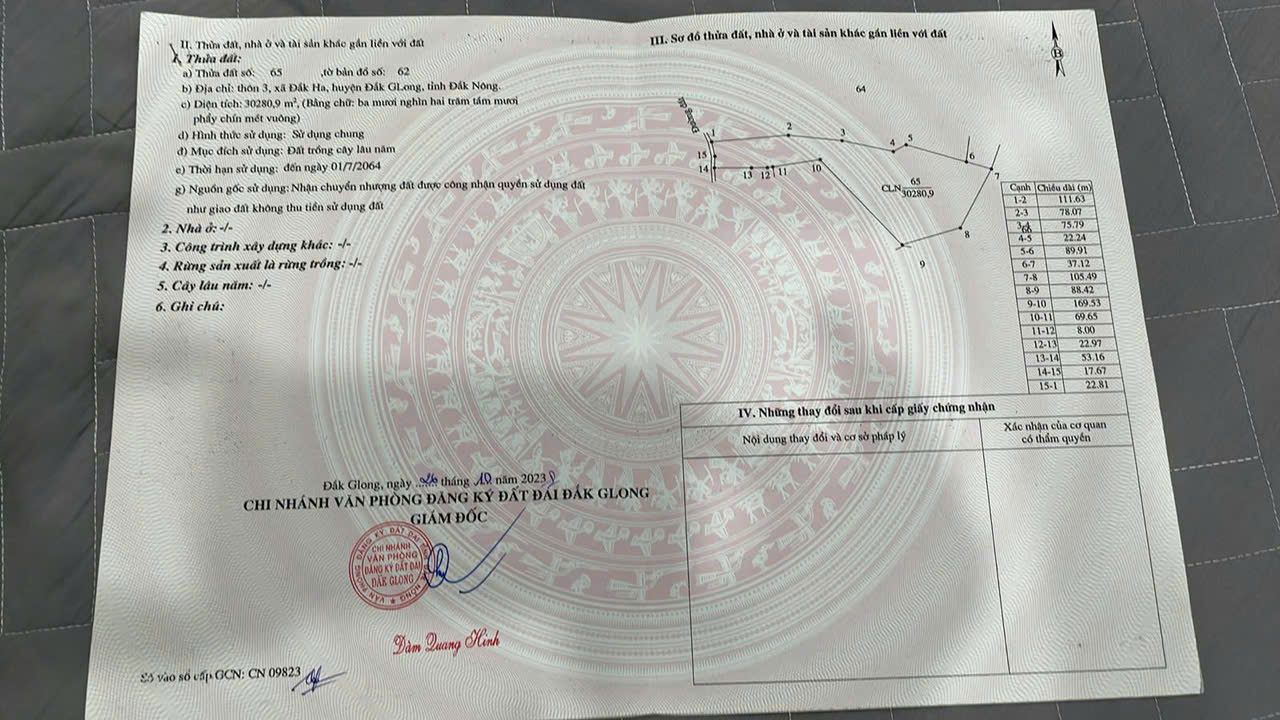 II. Thửa đất, nhà ở và tài sản khác gắn liền với đất
1. Thửa đất:
a) Thửa đất số: 65 ,tờ bản đồ số: 62
b) Địa chỉ: thôn 3, xã Đắk Ha, huyện Đắk GLong, tỉnh Đắk Nông.
c) Diện tích: 30280,9 m², (Bằng chữ: ba mươi nghìn hai trăm tám mươi
phẩy chín mét vuông)
d) Hình thức sử dụng: Sử dụng chung
đ) Mục đích sử dụng: Đất trồng cây lâu năm
e) Thời hạn sử dụng: đến ngày 01/7/2064
g) Nguồn gốc sử dụng: Nhận chuyển nhượng đất được công nhận quyền sử dụng đất
như giao đất không thu tiền sử dụng đất
2. Nhà ở: -/-
3. Công trình xây dựng khác: -/-
4. Rừng sản xuất là rừng trồng: -/-
5. Cây lâu năm: -/-
6. Ghi chú:
Đắk Glong, ngày 26 tháng 10 năm 2023
CHI NHÁNH VĂN PHÒNG ĐĂNG KÝ ĐẤT ĐAI ĐẮK GLONG
GIÁM ĐỐC
CHI NHÁNH
VĂN PHÒNG
ĐĂNG KÝ ĐẤT ĐAI
ĐẮK GLONG
Đàm Quang Hinh
Số vào sổ cấp GCN: CN 09823
III. Sơ đồ thửa đất, nhà ở và tài sản khác gắn liền với đất
B
64
Đường đất
1
2
3
4
5
6
7
8
9
10
11
12
13
14
15
CLN 65
30280,9
Cạnh Chiều dài (m)
1-2 111.63
2-3 78.07
3-4 75.79
4-5 22.24
5-6 89.91
6-7 37.12
7-8 105.49
8-9 88.42
9-10 169.53
10-11 69.65
11-12 8.00
12-13 22.97
13-14 53.16
14-15 17.67
15-1 22.81
IV. Những thay đổi sau khi cấp giấy chứng nhận
Nội dung thay đổi và cơ sở pháp lý
Xác nhận của cơ quan
có thẩm quyền